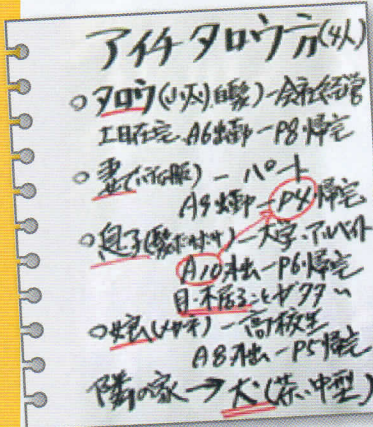 アイチ タロウ方(4人)
○タロウ(小太り白髪)ー会社経営
土日在宅 A6出勤ーP8帰宅
○妻 ーパート
A9出勤ーP4帰宅
○息子(髪ボサボサ)ー大学・アルバイト
A10外出ーP6帰宅
日・木居ることが多い
○娘(メガネ)ー高校生
A8外出ーP5帰宅
隣の家→犬(茶・中型)